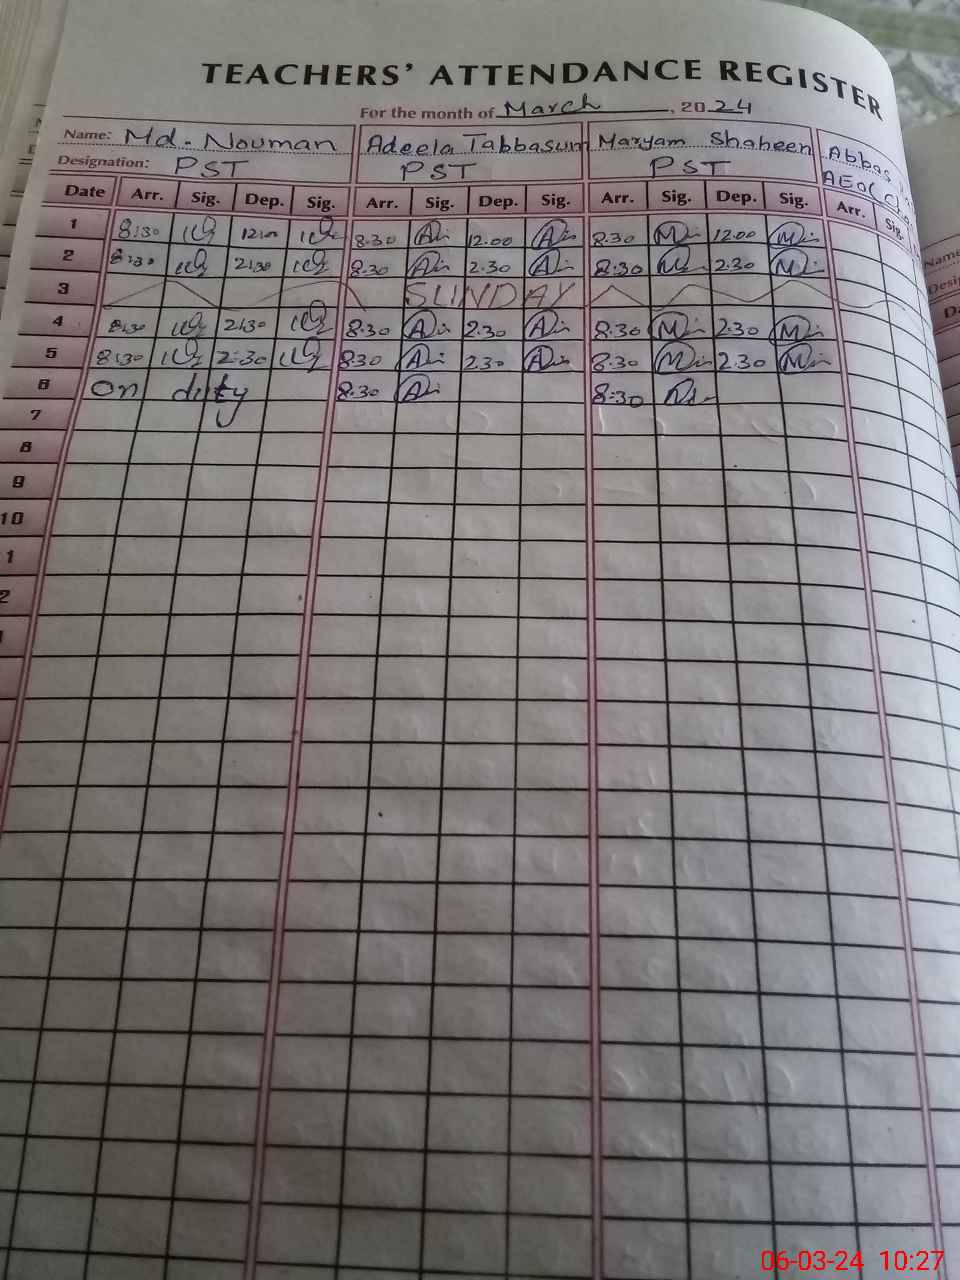 TEACHERS' ATTENDANCE REGISTER
For the month of March, 2024
Name: Md. Nouman Adeela Tabbasum Maryam Shaheen Abbas
Designation: PST PST PST AEO(
Date Arr. Sig. Dep. Sig. Arr. Sig. Dep. Sig. Arr. Sig. Dep. Sig. Arr. Sig.
1 8:30 12:00 8:30 12.00 8:30 12:00
2 8:30 2:30 8:30 2.30 8:30 2.30
3 SUNDAY
4 8:30 2:30 8:30 2.30 8:30 2.30
5 8:30 2:30 8:30 2.30 8:30 2.30
6 On duty 8:30 8:30
7
8
9
10
1
2
06-03-24 10:27